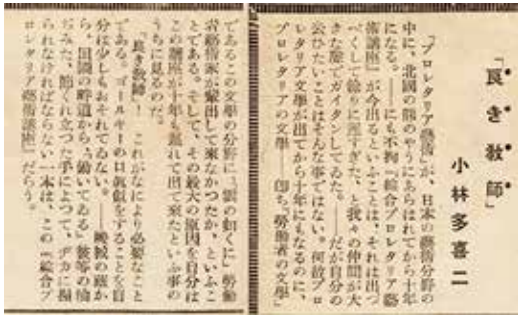 「良き教師」
小林多喜二
「プロレタリア藝術」が、日本の藝術分野の
中に、北國の熊のやうにあらはれてから十年
になる。――にも不拘「綜合プロレタリア藝
術講座」が今出るといふことは、それは出づ
べくして餘りに遅すぎた、と我々の仲間が大
きな聲でガイタンしてゐた。――だが自分の
云ひたいことはそんな事ではない。何故プロ
レタリア文學が出てから十年にもなるのに、
プロレタリアの文學――卽ち「勞働者の文學」
であるこの文學の分野に、「雲の如くに」勞働
者藝術家が輩出して來なかつたか、といふこ
とである。そして、その最大の原因を自分は
この講座が十年も遅れて出て來たといふ事の
うちに見るのだ。
「良き敎師」！　これがなにより必要なこと
である。ゴールキーの口眞似をすることを自
分は少しもおそれてゐない。――機械の蔭か
ら、田圃の畔道から、「働いてゐる」彼等の
じみた、節くれ立つた手によつて、ヂカに掴
られなければならない一本は、この「綜合プ
ロレタリア藝術講座」だらう。